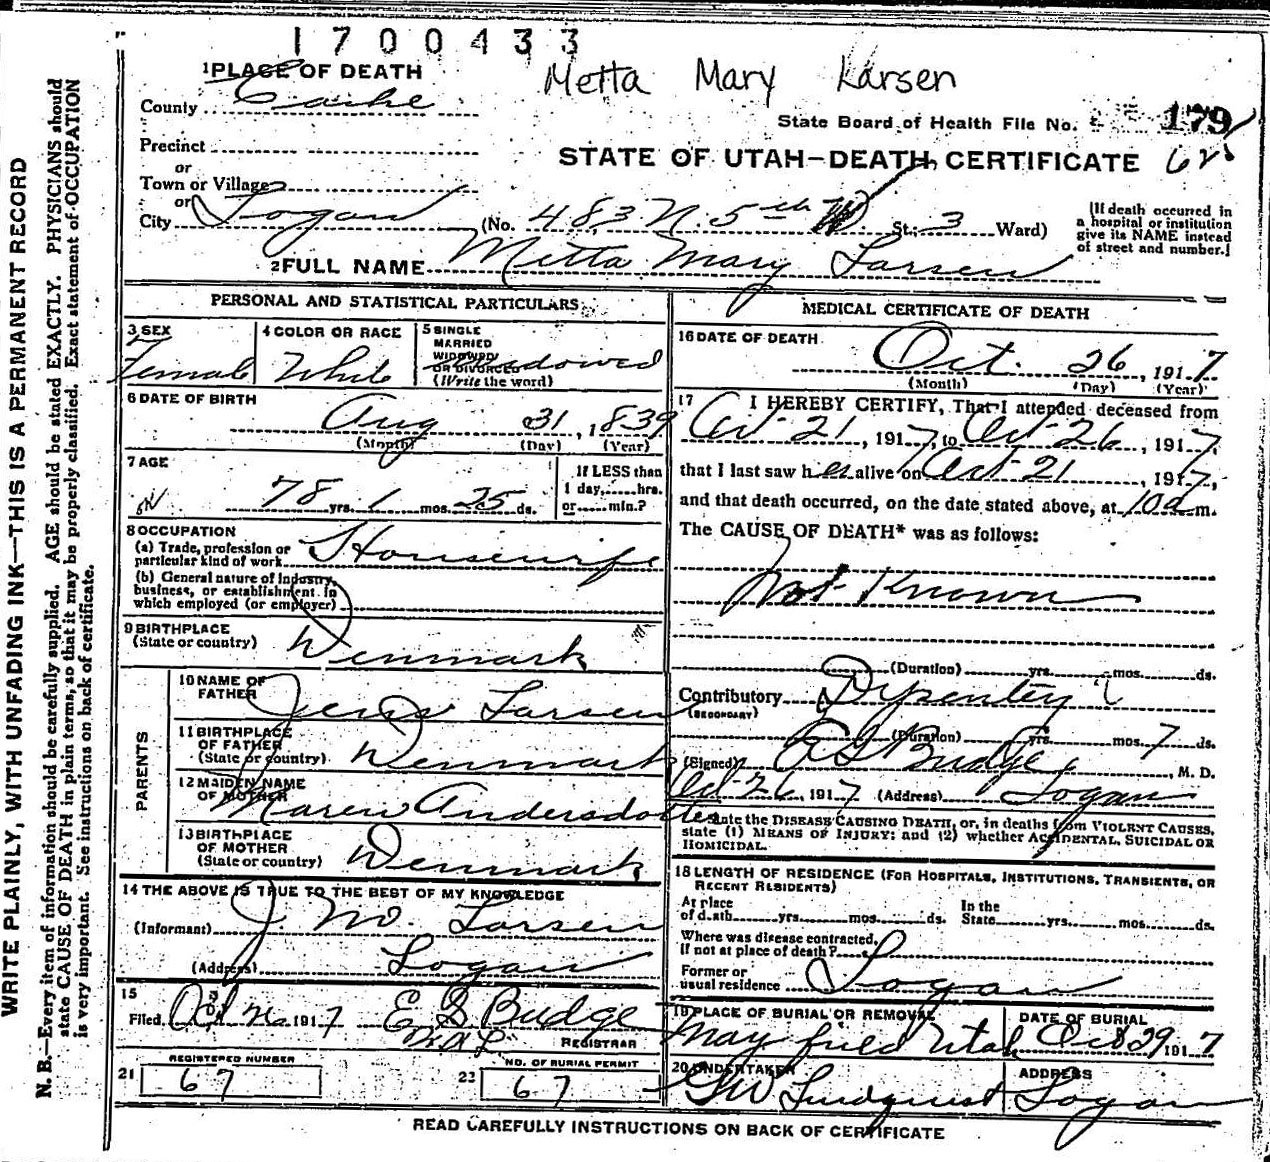 1700433
Metta Mary Larsen
1 PLACE OF DEATH
County Cache
State Board of Health File No. 179
Precinct
STATE OF UTAH—DEATH CERTIFICATE
or
Town or Village
or
City Logan (No. 483 N. 5th W. St.; 3 Ward)
(If death occurred in
a hospital or institution
give its NAME instead
of street and number.)
2 FULL NAME Metta Mary Larsen
PERSONAL AND STATISTICAL PARTICULARS
3 SEX
Female
4 COLOR OR RACE
White
5 SINGLE
MARRIED
WIDOWED
OR DIVORCED
(Write the word)
Widowed
6 DATE OF BIRTH
Aug 31, 1839
(Month) (Day) (Year)
7 AGE
78 yrs. 1 mos. 25 ds.
If LESS than
1 day,......hrs.
or......min.?
8 OCCUPATION
(a) Trade, profession or
particular kind of work Housewife
(b) General nature of Industry,
business, or establishment in
which employed (or employer)
9 BIRTHPLACE
(State or country) Denmark
PARENTS
10 NAME OF
FATHER Jens Larsen
11 BIRTHPLACE
OF FATHER
(State or country) Denmark
12 MAIDEN NAME
OF MOTHER Maren Andersdotter
13 BIRTHPLACE
OF MOTHER
(State or country) Denmark
14 THE ABOVE IS TRUE TO THE BEST OF MY KNOWLEDGE
(Informant) J. No. Larsen
(Address) Logan
15
Filed Oct 26 1917 E S Budge
REGISTRAR
REGISTERED NUMBER
21 67
NO. OF BURIAL PERMIT
22 67
MEDICAL CERTIFICATE OF DEATH
16 DATE OF DEATH
Oct. 26, 1917
(Month) (Day) (Year)
17 I HEREBY CERTIFY, That I attended deceased from
Oct-21, 1917, to Oct-26, 1917,
that I last saw her alive on Oct-21, 1917,
and that death occurred, on the date stated above, at 10 a m.
The CAUSE OF DEATH* was as follows:
Not Known
(Duration) yrs. mos. ds.
Contributory Dysentery
(SECONDARY)
(Duration) yrs. mos. 7 ds.
(Signed) Budge, M. D.
Oct-26, 1917 (Address) Logan
*State the DISEASE CAUSING DEATH, or, in deaths from VIOLENT CAUSES,
state (1) MEANS OF INJURY; and (2) whether ACCIDENTAL, SUICIDAL OR
HOMICIDAL.
18 LENGTH OF RESIDENCE (FOR HOSPITALS, INSTITUTIONS, TRANSIENTS, OR
RECENT RESIDENTS)
At place
of death yrs. mos. ds.
In the
State yrs. mos. ds.
Where was disease contracted,
If not at place of death?
Former or
usual residence Logan
19 PLACE OF BURIAL OR REMOVAL
Mayfield Utah
DATE OF BURIAL
Oct 29 1917
20 UNDERTAKER
GW Lindquist
ADDRESS
Logan
READ CAREFULLY INSTRUCTIONS ON BACK OF CERTIFICATE
WRITE PLAINLY, WITH UNFADING INK—THIS IS A PERMANENT RECORD
N. B.—Every item of information should be carefully supplied. AGE should be stated EXACTLY. PHYSICIANS should
state CAUSE OF DEATH in plain terms, so that it may be properly classified. Exact statement of OCCUPATION
is very important. See instructions on back of certificate.